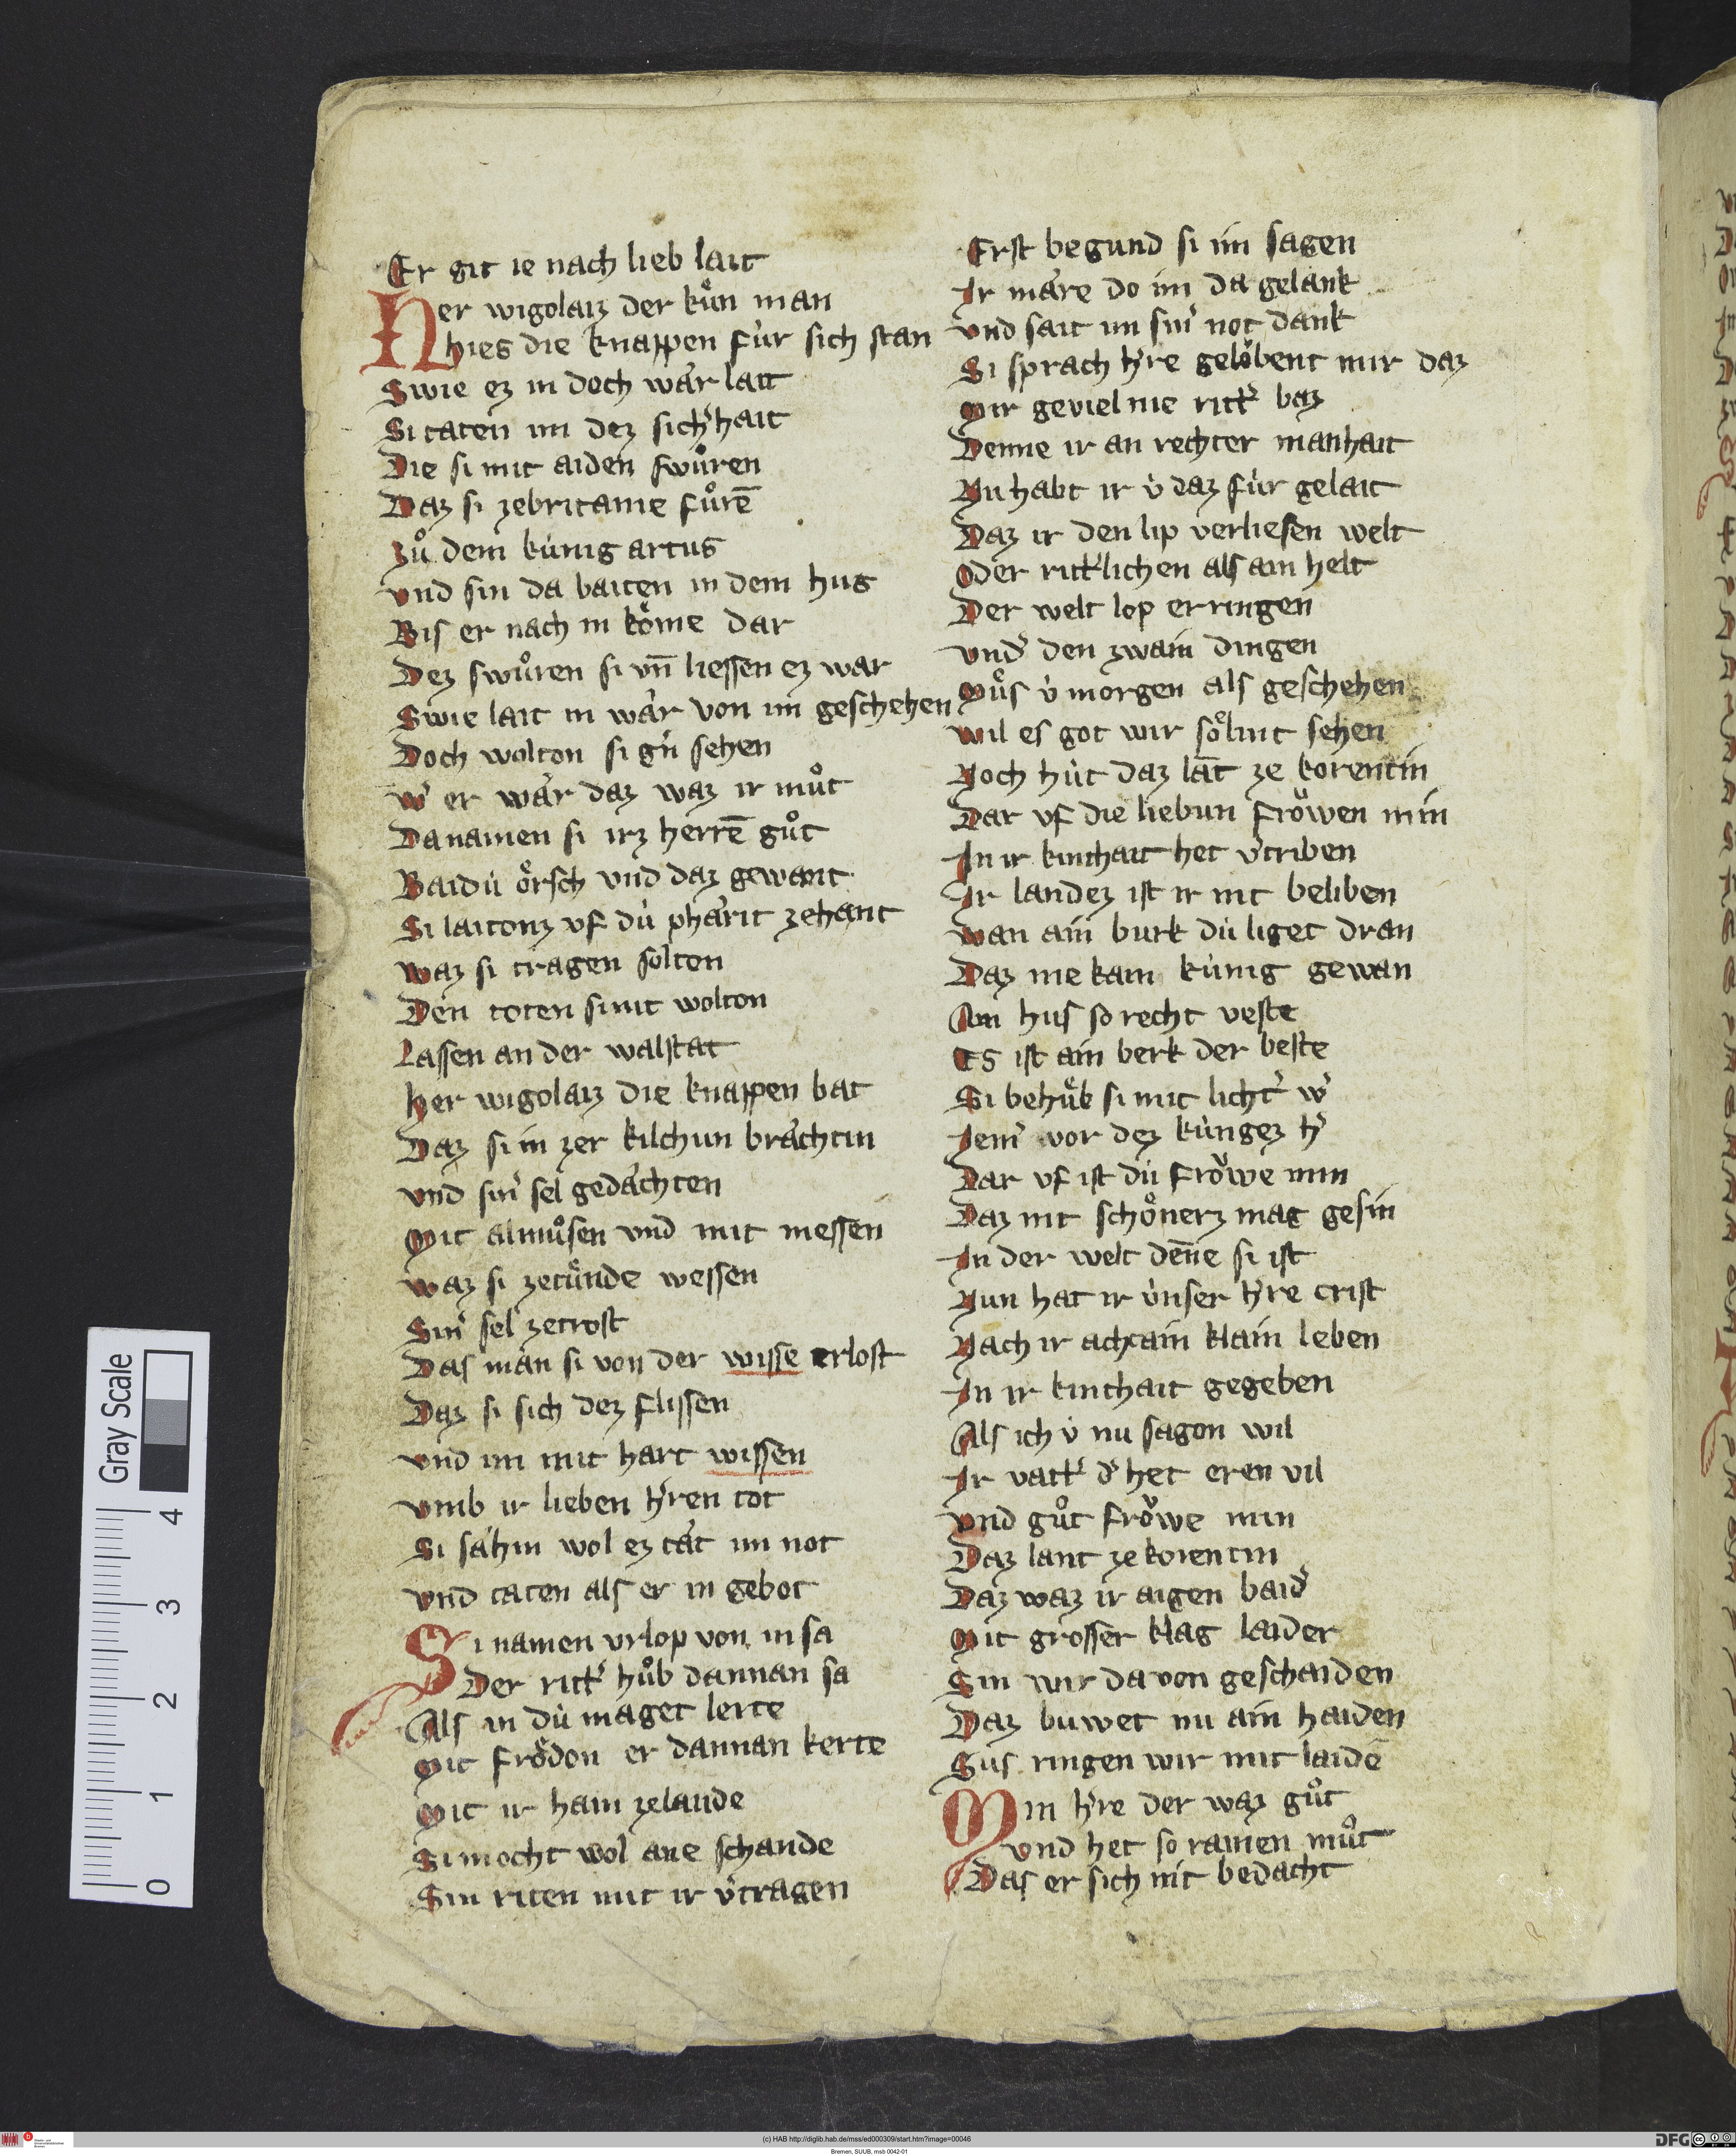 Er git ie nach lieb lait
Her wigolaiz der kuͤn man
hies die knappen fúr sich stan
Swie ez in doch wár lait
Si taten im dez sich'hait
Die si mit aiden swuͦren
Daz si zebritanie fuͦrē
Zuͦ dem kúnig artus
vnd sin da baiten in dem hus
Bis er nach in koͤme dar
Dez swuͦren si vn̄ liessen ez war
Swie lait in wár von im geschehen
Doch wolton si g'n sehen
w' er wár daz waz ir muͦt
Da namen si irz herrē guͦt
Baidú oͤrsch vnd daz gewant
Si laitonz vf dú phárit zehant
waz si tragen solten
Den toten si nit wolton
Lassen an der walstat
her wigolaiz die knappen bat
Daz si in zer kilchun bráchtin
vnd sin' sel gedáchten
Mit almuͦsen vnd mit messen
waz si zetuͤnde wessen
Sin' sel zetrost
Das man si von der wisse erlost
Daz si sich dez flissen
vnd im mit hart wissen
vmb ir lieben h'ren tot
Si sáhin wol ez tát im not
vnd taten als er in gebot
Si namen vrlop von in sa
Der ritt' huͦb dannan sa
Als in dú maget lerte
Mit froͤdon er dannan kerte
Mit ir haim zelande
Si mocht wol ane schande
Sin riten mit ir v'tragen
Erst begund si im sagen
Ir máre do im da gelank
vnd sait im sin' not dank
Si sprach h're geloͤbent mir daz
Mir geviel nie ritt' baz
Denne ir an rechter manhait
Nu habt ir v́ daz fúr gelait
Daz ir den lip verliesen welt
Oder ritt'lichen als ain helt
Der welt lop erringen
vnd' den zwain dingen
Muͤs v́ morgen als geschehen
wil es got wir soͤlint sehen
Noch hút daz lāt ze korentin
Dar vf die liebun froͤwen min
In ir kinthait het v'triben
Ir landez ist ir nit beliben
wan ain burk dú liget dran
Daz nie kain kúnig gewan
Ain hus so recht veste
Es ist ain berk der beste
Si behuͤb si mit licht' w'
Iem' vor dez kúngez h'
Dar vf ist dú froͤwe min
Daz nit schoͤnerz mag gesin
In der welt den̄e si ist
Nun hat ir v́nser h're crist
Nach ir acht ain klain leben
In ir kinthait gegeben
Als ich v́ nu sagon wil
Ir vatt' d' het eren vil
vnd guͦt froͤwe min
Daz lant ze korentin
Daz waz ir aigen baid'
Mit grosser klag laider
Sin wir da von geschaiden
Daz buwet nu ain haiden
Sus ringen wir mit laidē
Min h're der waz guͦt
vnd het so rainen muͦt
Das er sich nit bedacht
Gray Scale
4
3
2
1
0
(c) HAB http://diglib.hab.de/mss/ed000309/start.htm?image=00046
Bremen, SUUB, msb 0042-01
DFG